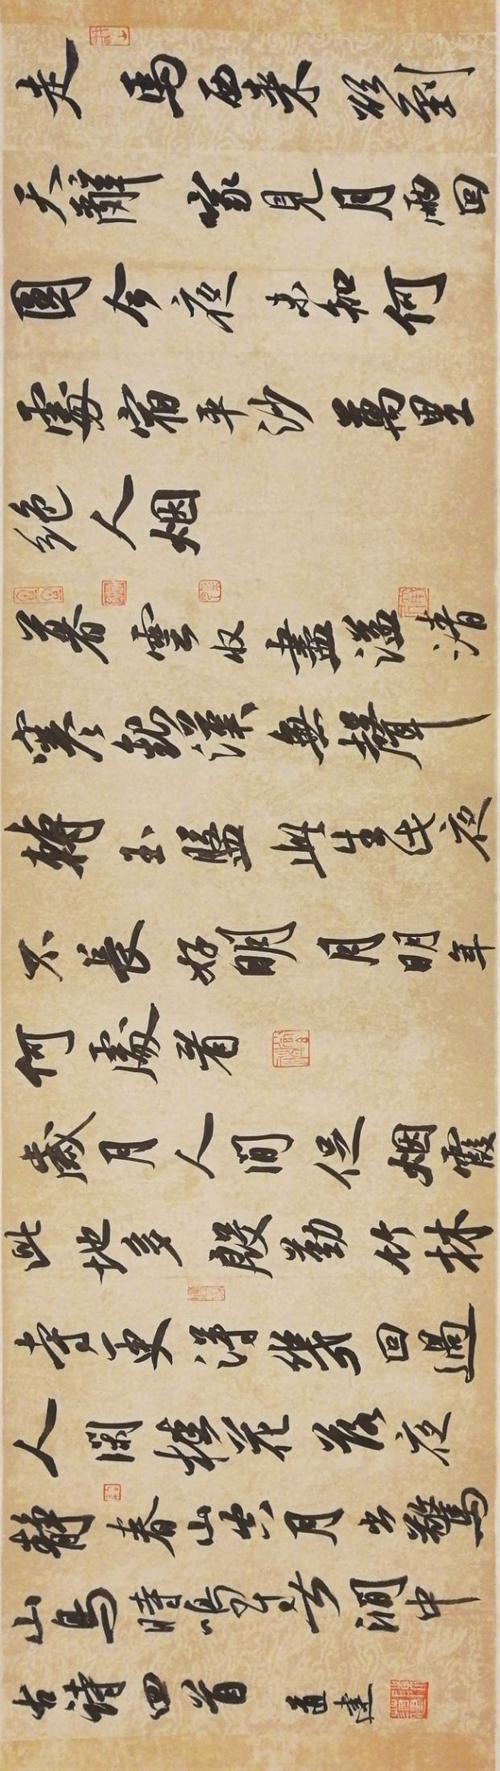 走馬西来欲到
天辭家見月兩回
圓今夜未知何
處宿平沙萬里
绝人烟
暮雲收盡溢清
寒銀漢無聲
轉玉盤此生此夜
不長好明月明年
何處看
歲月人間促烟霞
此地多殷勤竹林
寺更得幾回過
人閑桂花落夜
靜春山空月出驚
山鳥時鳴春澗中
古诗四首 道建